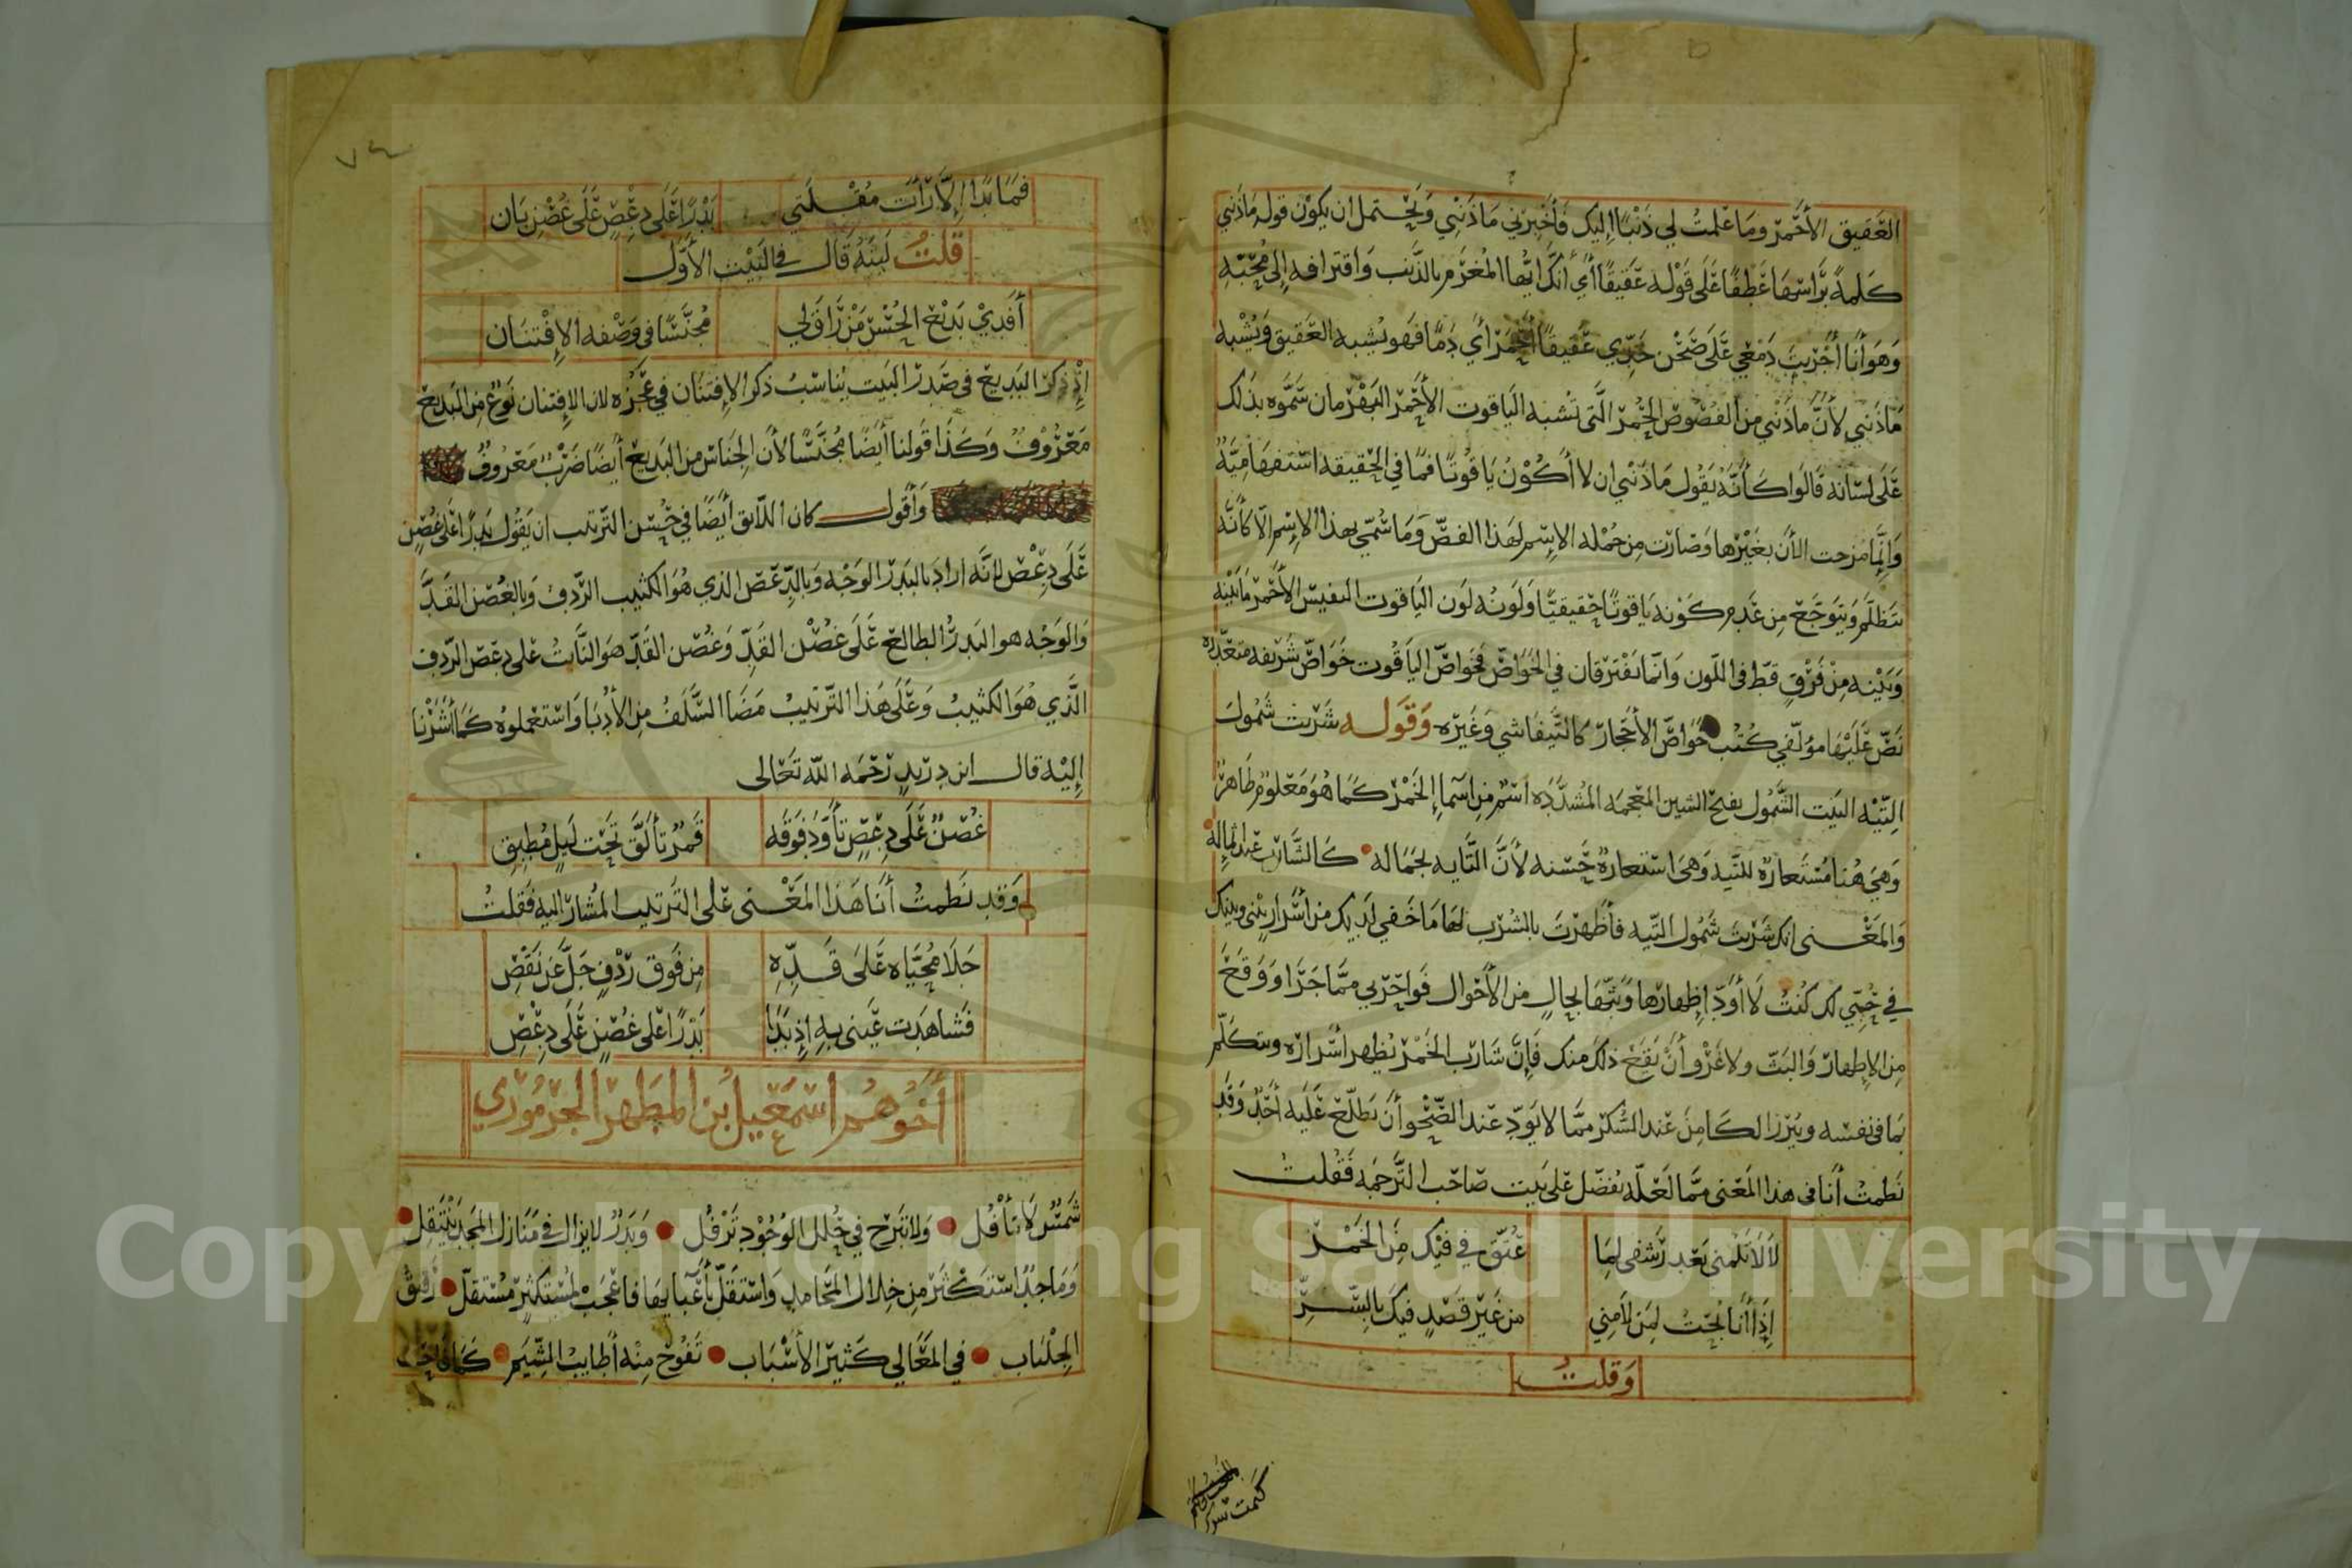 العقيق الأحمر وما علمت لي ذنبًا إليك فأخبرني ماذنبي ويحتمل ان يكون قوله ماذنبي
كلمة برأسها عطفًا على قوله عقيقًا أي أنك ايها المغرم بالذنب واقترافه إلى محبّه
وهو أنا أجريت دمعي على صحن خدّي عقيقًا أحمر أي دمًا فهو يشبه العقيق ويشبه
ماذنبي لأنّ ماذنبي من الفصوص الحُمر الّتي تشبه الياقوت الأحمر البهرمان سمّوه بذلك
على لسانه قالوا كأنّه يقول ماذنبي ان لا أكون ياقوتًا فما في الحقيقه استفهاميّة
وإنّما مزجت الأن بغيرها وصارت من جمله الاسم لهذا الفصّ وما سُمّي بهذا الإسم الّا كأنّه
يتظلّم ويتوجّع من عدم كونه ياقوتًا حقيقيًّا ولونه لون الياقوت النفيس الأحمر مابينه
وبينه من فرق قطّ في اللّون وانّما يفترقان في الخواصّ فخواصّ الياقوت خواصّ شريفه متعدّده
نصّ عليها مؤلّفي كتب خواصّ الأحجار كالتيفاشي وغيره وقوله شربت شمول
التّيه البيت الشّمول بفتح الشين المعجمه المشدّده اسم من اسما الخمر كما هو معلوم ظاهر
وهي هنا مستعارة للتّيه وهي استعارة حسنه لأنّ التّايه بجماله كالشّارب
والمعنى انك شربت شمول التّيه فأظهرت بالشرب لها ما خفي لديك من أسرار بيني وبينك
في حُبّي لك كنت لا أودّ إظهارها وبثّها بحالٍ من الأحوال فواحربي ممّا جرّا ووقع
من الإظهار والبثّ ولا غرو أن يقع ذلك منك فإنّ شارب الخمر يُظهر أسراره ويتكلّم
بما في نفسه ويبرز الكامن عند السُّكر ممّا لا يودّ عند الصّحو أن يطلّع عليه أحدٌ وقد
نظمت أنا في هذا المعنى ممّا لعلّه يفضل على بيت صاحب التّرجمه فقلت
لا لا تلمني بعد رشفي لما عُتّق في فيك من الخمر
إذا أنا بُحت لمن لامني من غير قصدٍ فيك بالسّرّ
وقلت
٧٤
فما بدا إلّا رأت مقلتي بدرًا على دعصٍ على غصن بان
قلت ليته قال في البيت الأوّل
أفدي بديع الحسن من راق لي مجنّسًا في وصفه الإفتنان
إذ ذكر البديع في صدر البيت يناسب ذكر الإفتنان في عجزه لان الإفتنان نوع من البديع
معروف وكذا قولنا أيضًا مجنّسًا لأن الجناس من البديع أيضًا ضربٌ معروف
وأقول كان اللائق أيضًا في حسن الترتيب ان يقول بدرًا على غصن
على دعص لانّه اراد بالبدر الوجه وبالدّعص الذي هو الكثيب الرّدف وبالغصن القدّ
والوجه هو البدر الطالع على غصن القدّ وغصن القدّ هو النّابت على دعص الرّدف
الّذي هو الكثيب وعلى هذا التّرتيب مضا السّلف من الأدبا واستعملوه كما أشرنا
إليه قال ابن دريدٍ رحمه اللّه تعالى
غصنٌ على دعصٍ تأوّد فوقه قمرٌ تألّق تحت ليلٍ مُطبق
وقد نظمت أنا هذا المعنى على الترتيب المشار اليه فقلت
جلا محيّاه على قدّه من فوق ردفٍ جلّ عن نقص
فشاهدت عيني به إذ بدا بدرًا على غصنٍ على دعص
أخوهم اسمعيل بن المطهر الجرموزي
شمسٌ لا تأفُل ولا تبرح في حُلل الوجود ترفُل وبدرٌ لا يزال في منازل المجد ينتقل
وماجدٌ استكثر من خلال المحامد واستقلّ بأعبايها فاعجب لمستكثرٍ مستقلّ رقيق
الجلباب في المعالي كثير الأسباب تفوح منه أطايب الشّيم